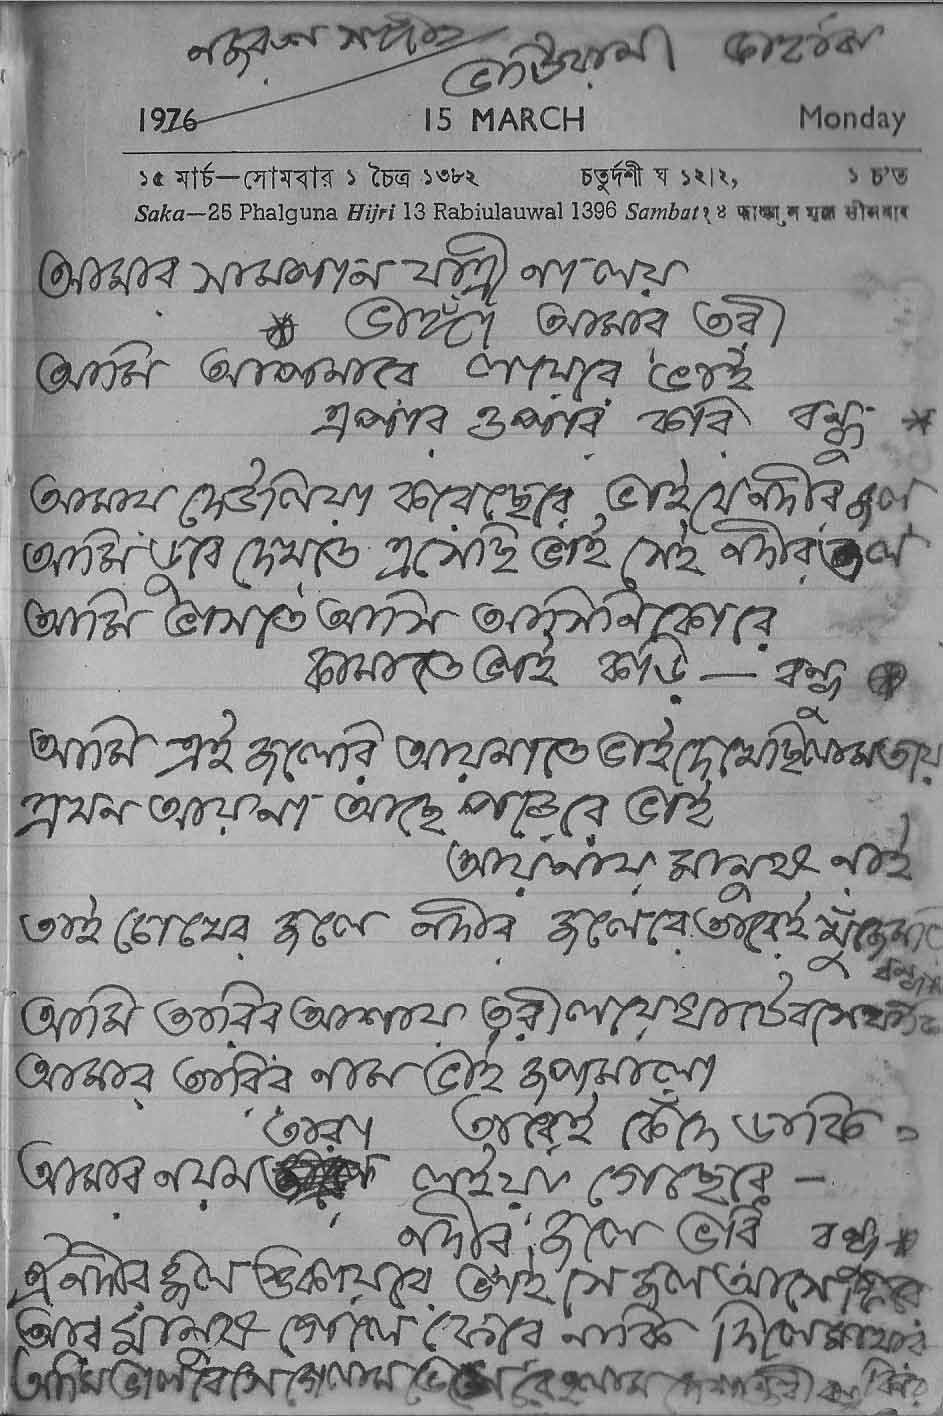 নজরুল সঙ্গীত
ভাটিয়ালী
1976 15 MARCH Monday
১৫ মার্চ—সোমবার ১ চৈত্র ১৩৮২ চতুর্দশী ঘ ১২।২, ১ চ'ত
Saka—25 Phalguna Hijri 13 Rabiulauwal 1396 Sambat १४ फाल्गुन शुक्ल सोमवार
আমার সামপান যাত্রী না লয়
ভাঙ্গা আমার তরী
আমি আপনারে লয়েরে ভাই
এপার ওপার করি বন্ধু
আমায় দেউলিয়া করেছেরে ভাই যে নদীর জল
আমি ডুবে দেখতে এসেছি ভাই সেই নদীর জল
আমি ভাসতে আসি আসিনিকো রে
কামাতে ভাই কড়ি — বন্ধু
আমি এই জলেরি আয়নাতে ভাই দেখেছিলাম তায়
এখন আয়না আছে পড়েরে ভাই
আয়নায় মানুষ নাই
তাই চোখের জলে নদীর জলেরে তারেই খুঁজে
বন্ধু
আমি তারির আশায় তরী লয়ে ঘাটে বসে থাকি
আমার তারির নাম ভাই জপমালা
তারেই কেঁদে ডাকি
তারা
আমার নয়ন লইয়া গেছেরে –
নদীর জলে ভরি বন্ধু
ঐ নদীর জল শুকায়রে ভাই সে জল আসে ফিরে
আর মানুষ গেলে ফেরে নাকি দিলে মাথার
কিরে
আমি ভালবেসে গেলাম ভেসে রে হলাম দেশান্তরী